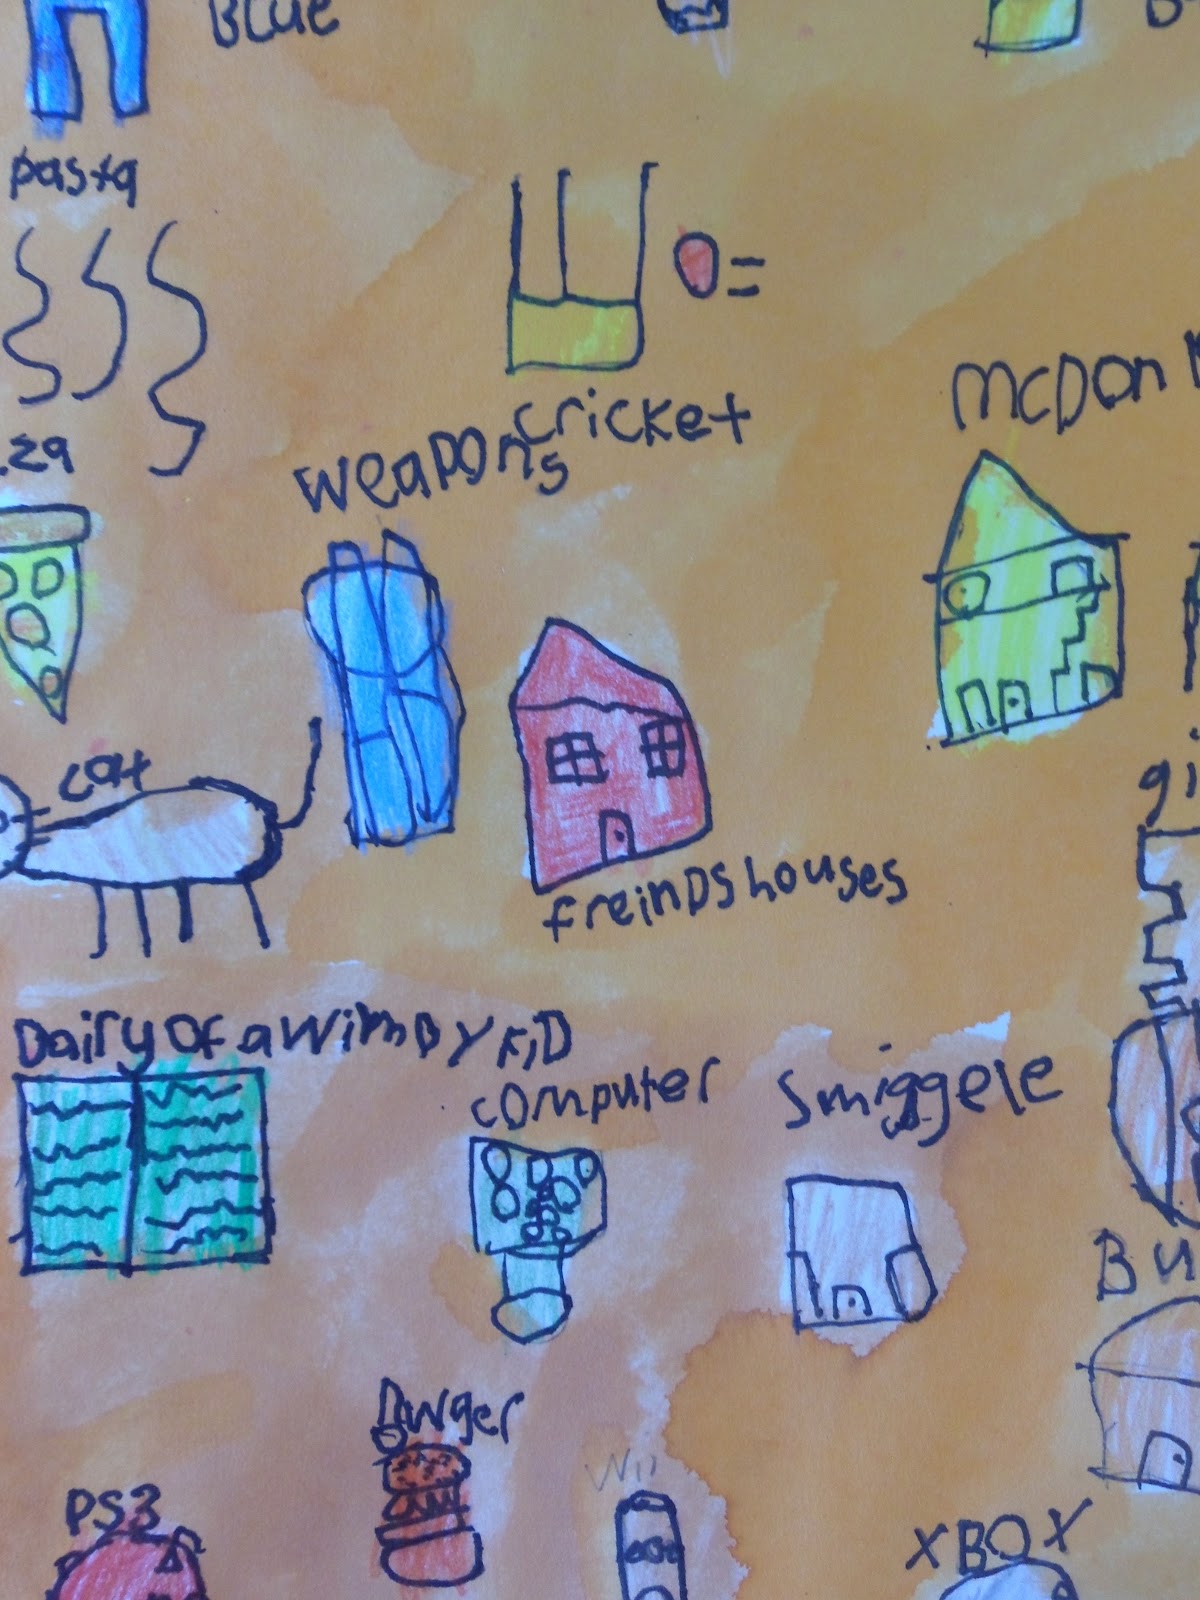 BLUE
pasta
cricket
weapons
mcDon
cat
freinDs houses
Dairy of a wimBy KiD
computer
smiggele
gi
Bu
Burger
Wii
PS3
XBOX